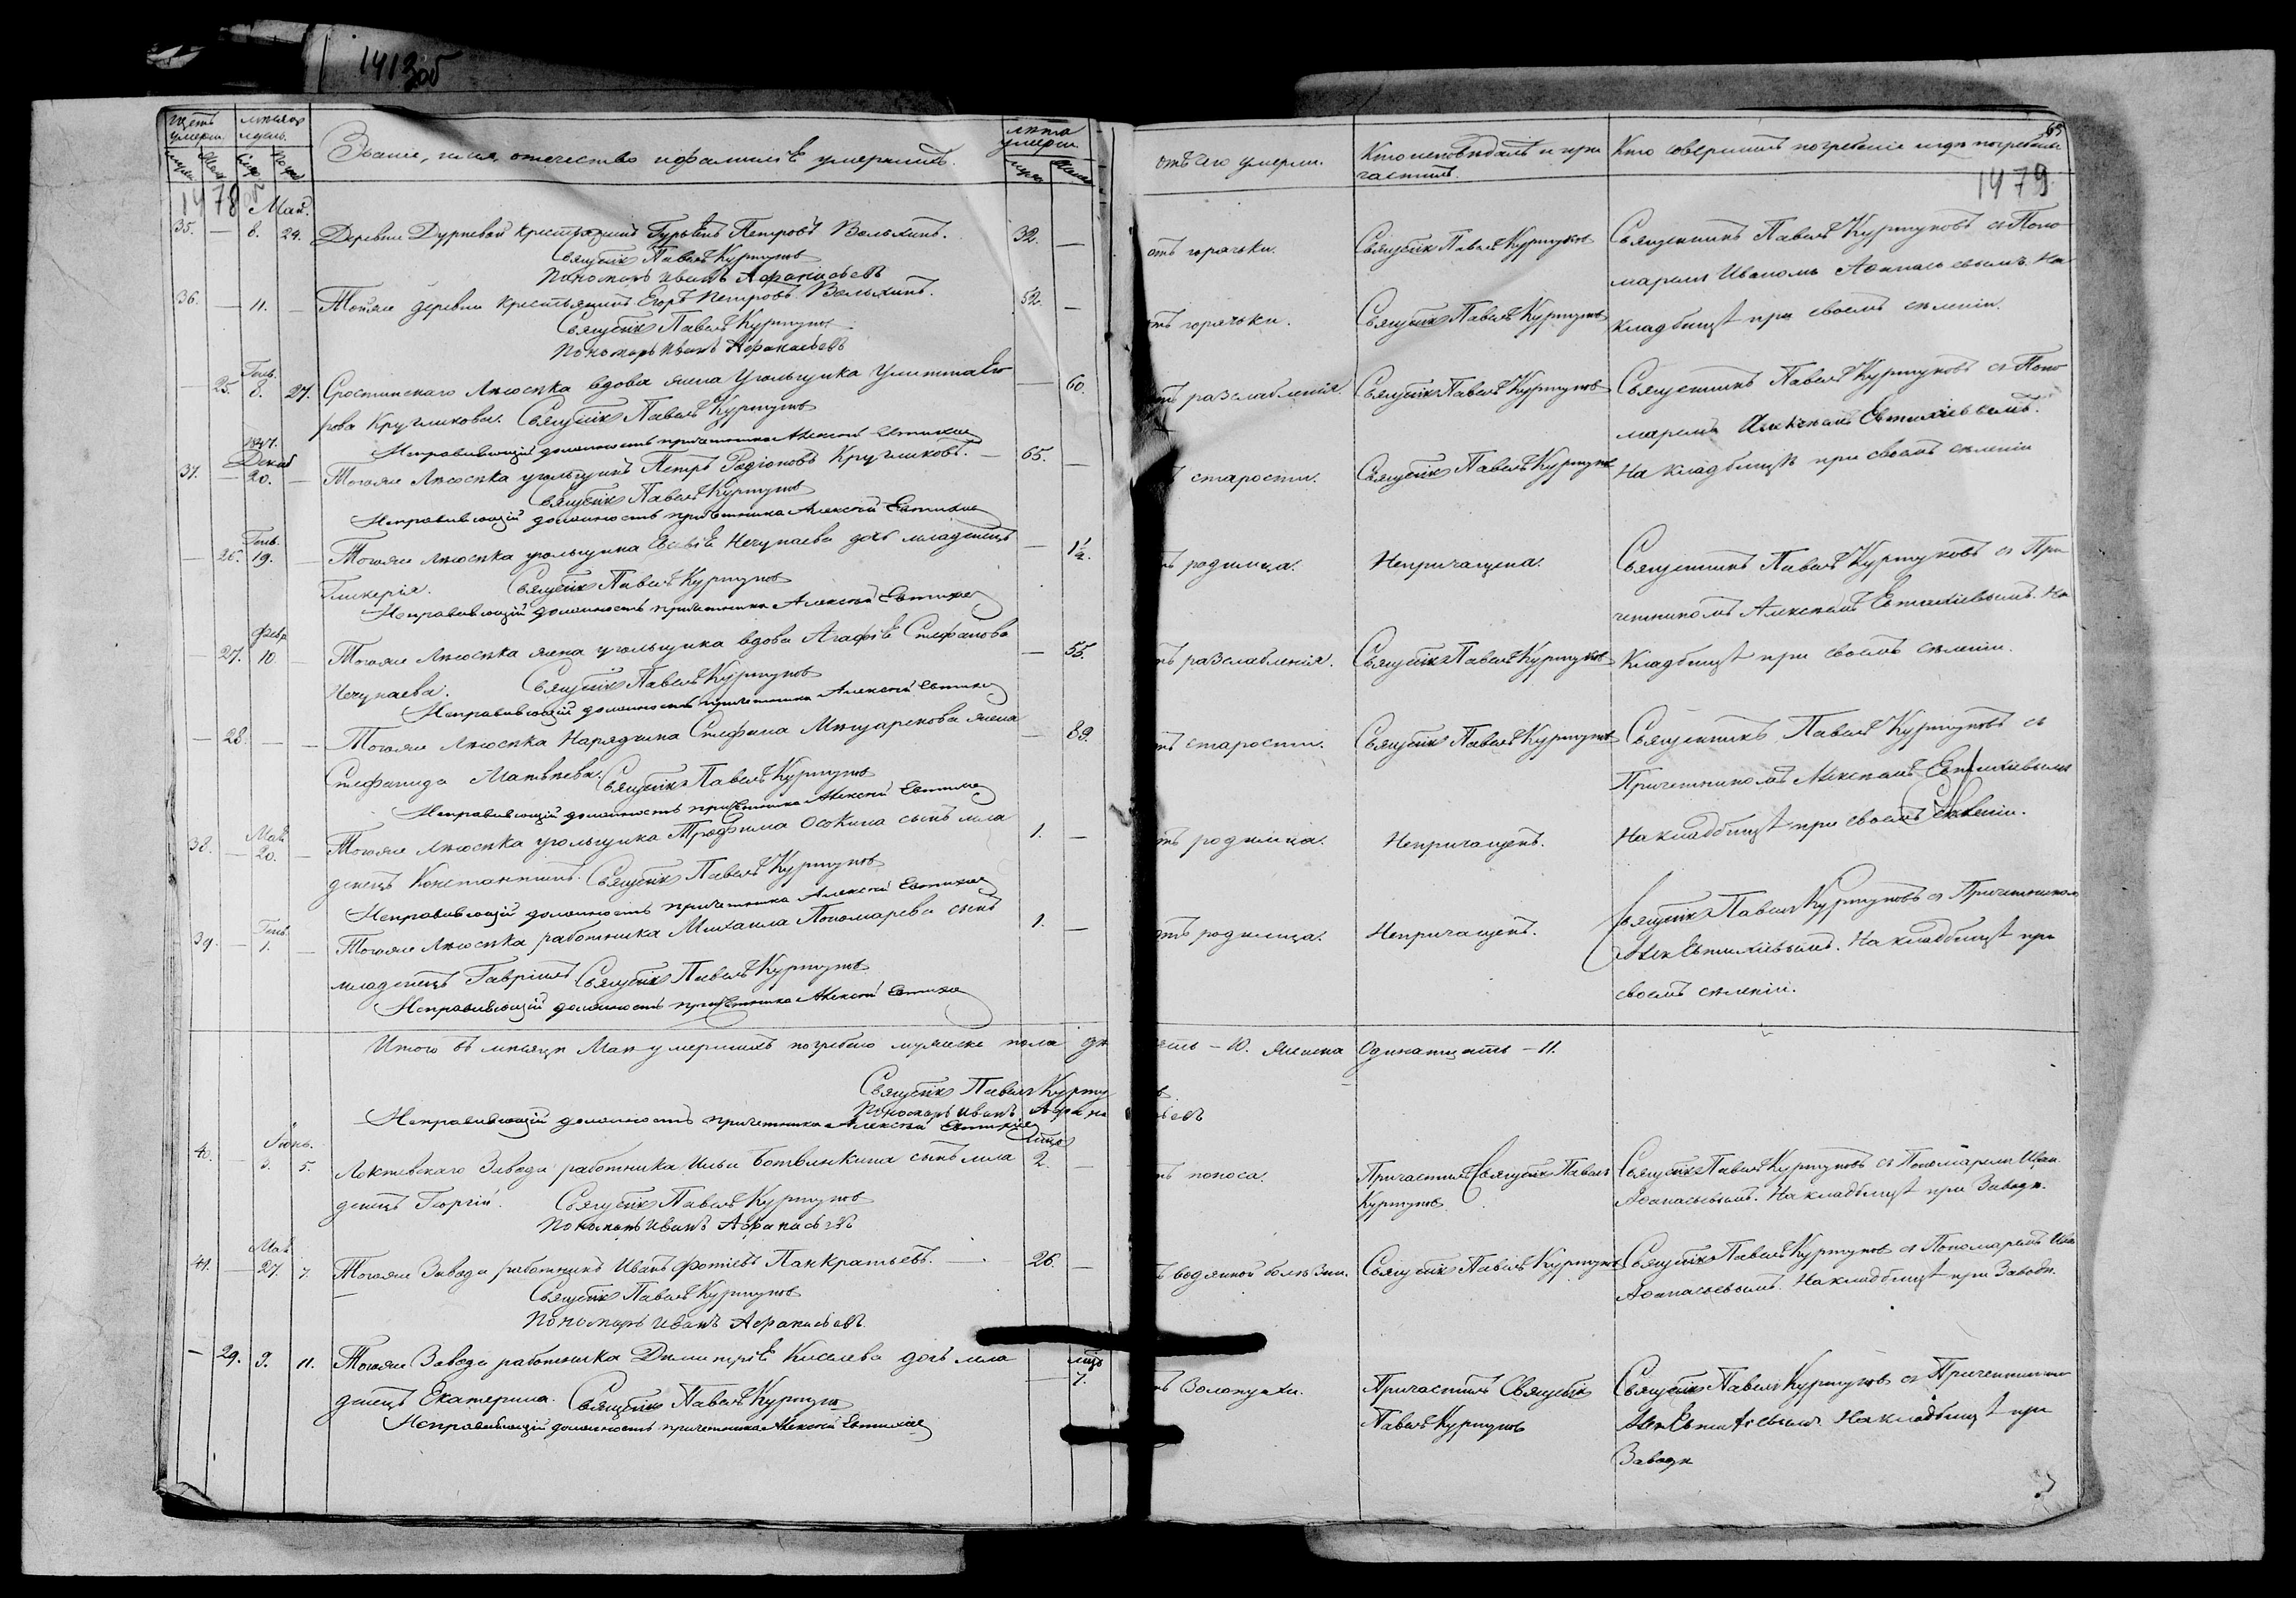 1413об
Званіе, имя, отечество и фамилія умершихъ.
лѣта умерш.
1478об
Май.
35. — 8. 24. Деревни Дурневой крестьянинъ Гурьянъ Петровъ Вольхинъ. 32. —
Священникъ Павелъ Куртуковъ
Пономарь Иванъ Афанасьевъ
36. — 11. — Тояже деревни крестьянинъ Егоръ Петровъ Вольхинъ. 52. —
Священникъ Павелъ Куртуковъ
Пономарь Иванъ Афанасьевъ
Генв.
— 25. 8. 27. Сростинскаго Лѣсоска вдова жена угольщика Улитта Его — 60.
рова Кругликова. Священникъ Павелъ Куртуковъ
Исправляющій должность причетника Алексѣй Евтихіев
1847. Декаб
37. — 20. — Тогоже Лѣсоска угольщикъ Петръ Родіоновъ Кругликовъ. — 65. —
Священникъ Павелъ Куртуковъ
Исправляющій должность причетника Алексѣй Евтихіев
Генв.
— 26. 19. — Тогоже Лѣсоска угольщика Нечунаева дочь младенецъ — 1½.
Гликерія. Священникъ Павелъ Куртуковъ
Исправляющій должность причетника Алексѣй Евтихіев
Февр
— 27. 10. — Тогоже Лѣсоска жена угольщика вдова Агафія Стефанова — 55.
Нечунаева. Священникъ Павелъ Куртуковъ
Исправляющій должность причетника Алексѣй Евтихіев
— 28. — — Тогоже Лѣсоска Нарядчика Стефана жена — 89.
Стефанида Матвѣева. Священникъ Павелъ Куртуковъ
Исправляющій должность причетника Алексѣй Евтихіев
Май
38. — 20. — Тогоже Лѣсоска угольщика Трофима Осокина сынъ мла 1. —
денецъ Константинъ. Священникъ Павелъ Куртуковъ
Исправляющій должность причетника Алексѣй Евтихіев
Генв.
39. — 1. — Тогоже Лѣсоска работника Михаила Пономарева сынъ 1. —
младенецъ Гавріилъ Священникъ Павелъ Куртуковъ
Исправляющій должность причетника Алексѣй Евтихіев
Итого въ мѣсяцѣ Маѣ умершихъ погребено мужеска пола де
Священникъ Павелъ Курту
Пономарь Иванъ Афана
Исправляющій должность причетника Алексѣй Евтихіев
Іюнь.
40. — 3. 5. Локтевскаго Завода работника Ильи Ботвинкина сынъ мла 2.
денецъ Георгій. Священникъ Павелъ Куртуковъ
Пономарь Иванъ Афанасьевъ
Мая
41. — 27. 7. Тогоже Завода работникъ Иванъ Фотіевъ Панкратьевъ. — 26. —
Священникъ Павелъ Куртуковъ
Пономарь Иванъ Афанасьевъ.
— 29. 9. 11. Тогоже Завода работника Димитрія Киселева дочь мла — 7.
денецъ Екатерина. Священникъ Павелъ Куртуковъ
Исправляющій должность причетника Алексѣй Евтихіев
отъ чего умерли. Кто исповѣдалъ и при Кто совершилъ погребеніе и гдѣ погребены
частилъ.
1479
отъ горячки. Священникъ Павелъ Куртуковъ Священникъ Павелъ Куртуковъ съ Поно
маремъ Иваномъ Афанасьевымъ. На
отъ горячки. Священникъ Павелъ Куртуковъ кладбищѣ при своемъ селеніи.
тъ разслабленія. Священникъ Павелъ Куртуковъ Священникъ Павелъ Куртуковъ съ Поно
маремъ Алексѣемъ Евтихіевымъ.
ъ старости. Священникъ Павелъ Куртуковъ На кладбищѣ при своемъ селеніи
ъ родимца. Непричащена. Священникъ Павелъ Куртуковъ съ При
четникомъ Алексѣемъ Евтихіевымъ. На
тъ разслабленія. Священникъ Павелъ Куртуковъ Кладбищѣ при своемъ селеніи.
тъ старости. Священникъ Павелъ Куртуковъ Священникъ Павелъ Куртуковъ съ
Причетникомъ Алексѣемъ Евтихіевымъ
тъ родимца. Непричащенъ. На кладбищѣ при своемъ селеніи.
отъ родимца. Непричащенъ. Священникъ Павелъ Куртуковъ съ Причетником
Алек Евтихіевымъ. На кладбищѣ при
своемъ селеніи.
ять — 10. женска Одинатцать — 11.
въ
ьевъ
тъ поноса. Причастилъ Священникъ Павелъ Священникъ Павелъ Куртуковъ съ Пономаремъ Иван.
Куртуковъ Афанасьевымъ. На кладбищѣ при Заводѣ.
ъ водяной болѣзни. Священникъ Павелъ Куртуковъ Священникъ Павелъ Куртуковъ съ Пономаремъ Ива
Афанасьевымъ. На кладбищѣ при Заводѣ.
ъ золотухи. Причастилъ Священникъ Священникъ Павелъ Куртуковъ съ Причетником
Павелъ Куртуковъ Алек Евтихіевымъ На кладбищѣ при
Заводѣ